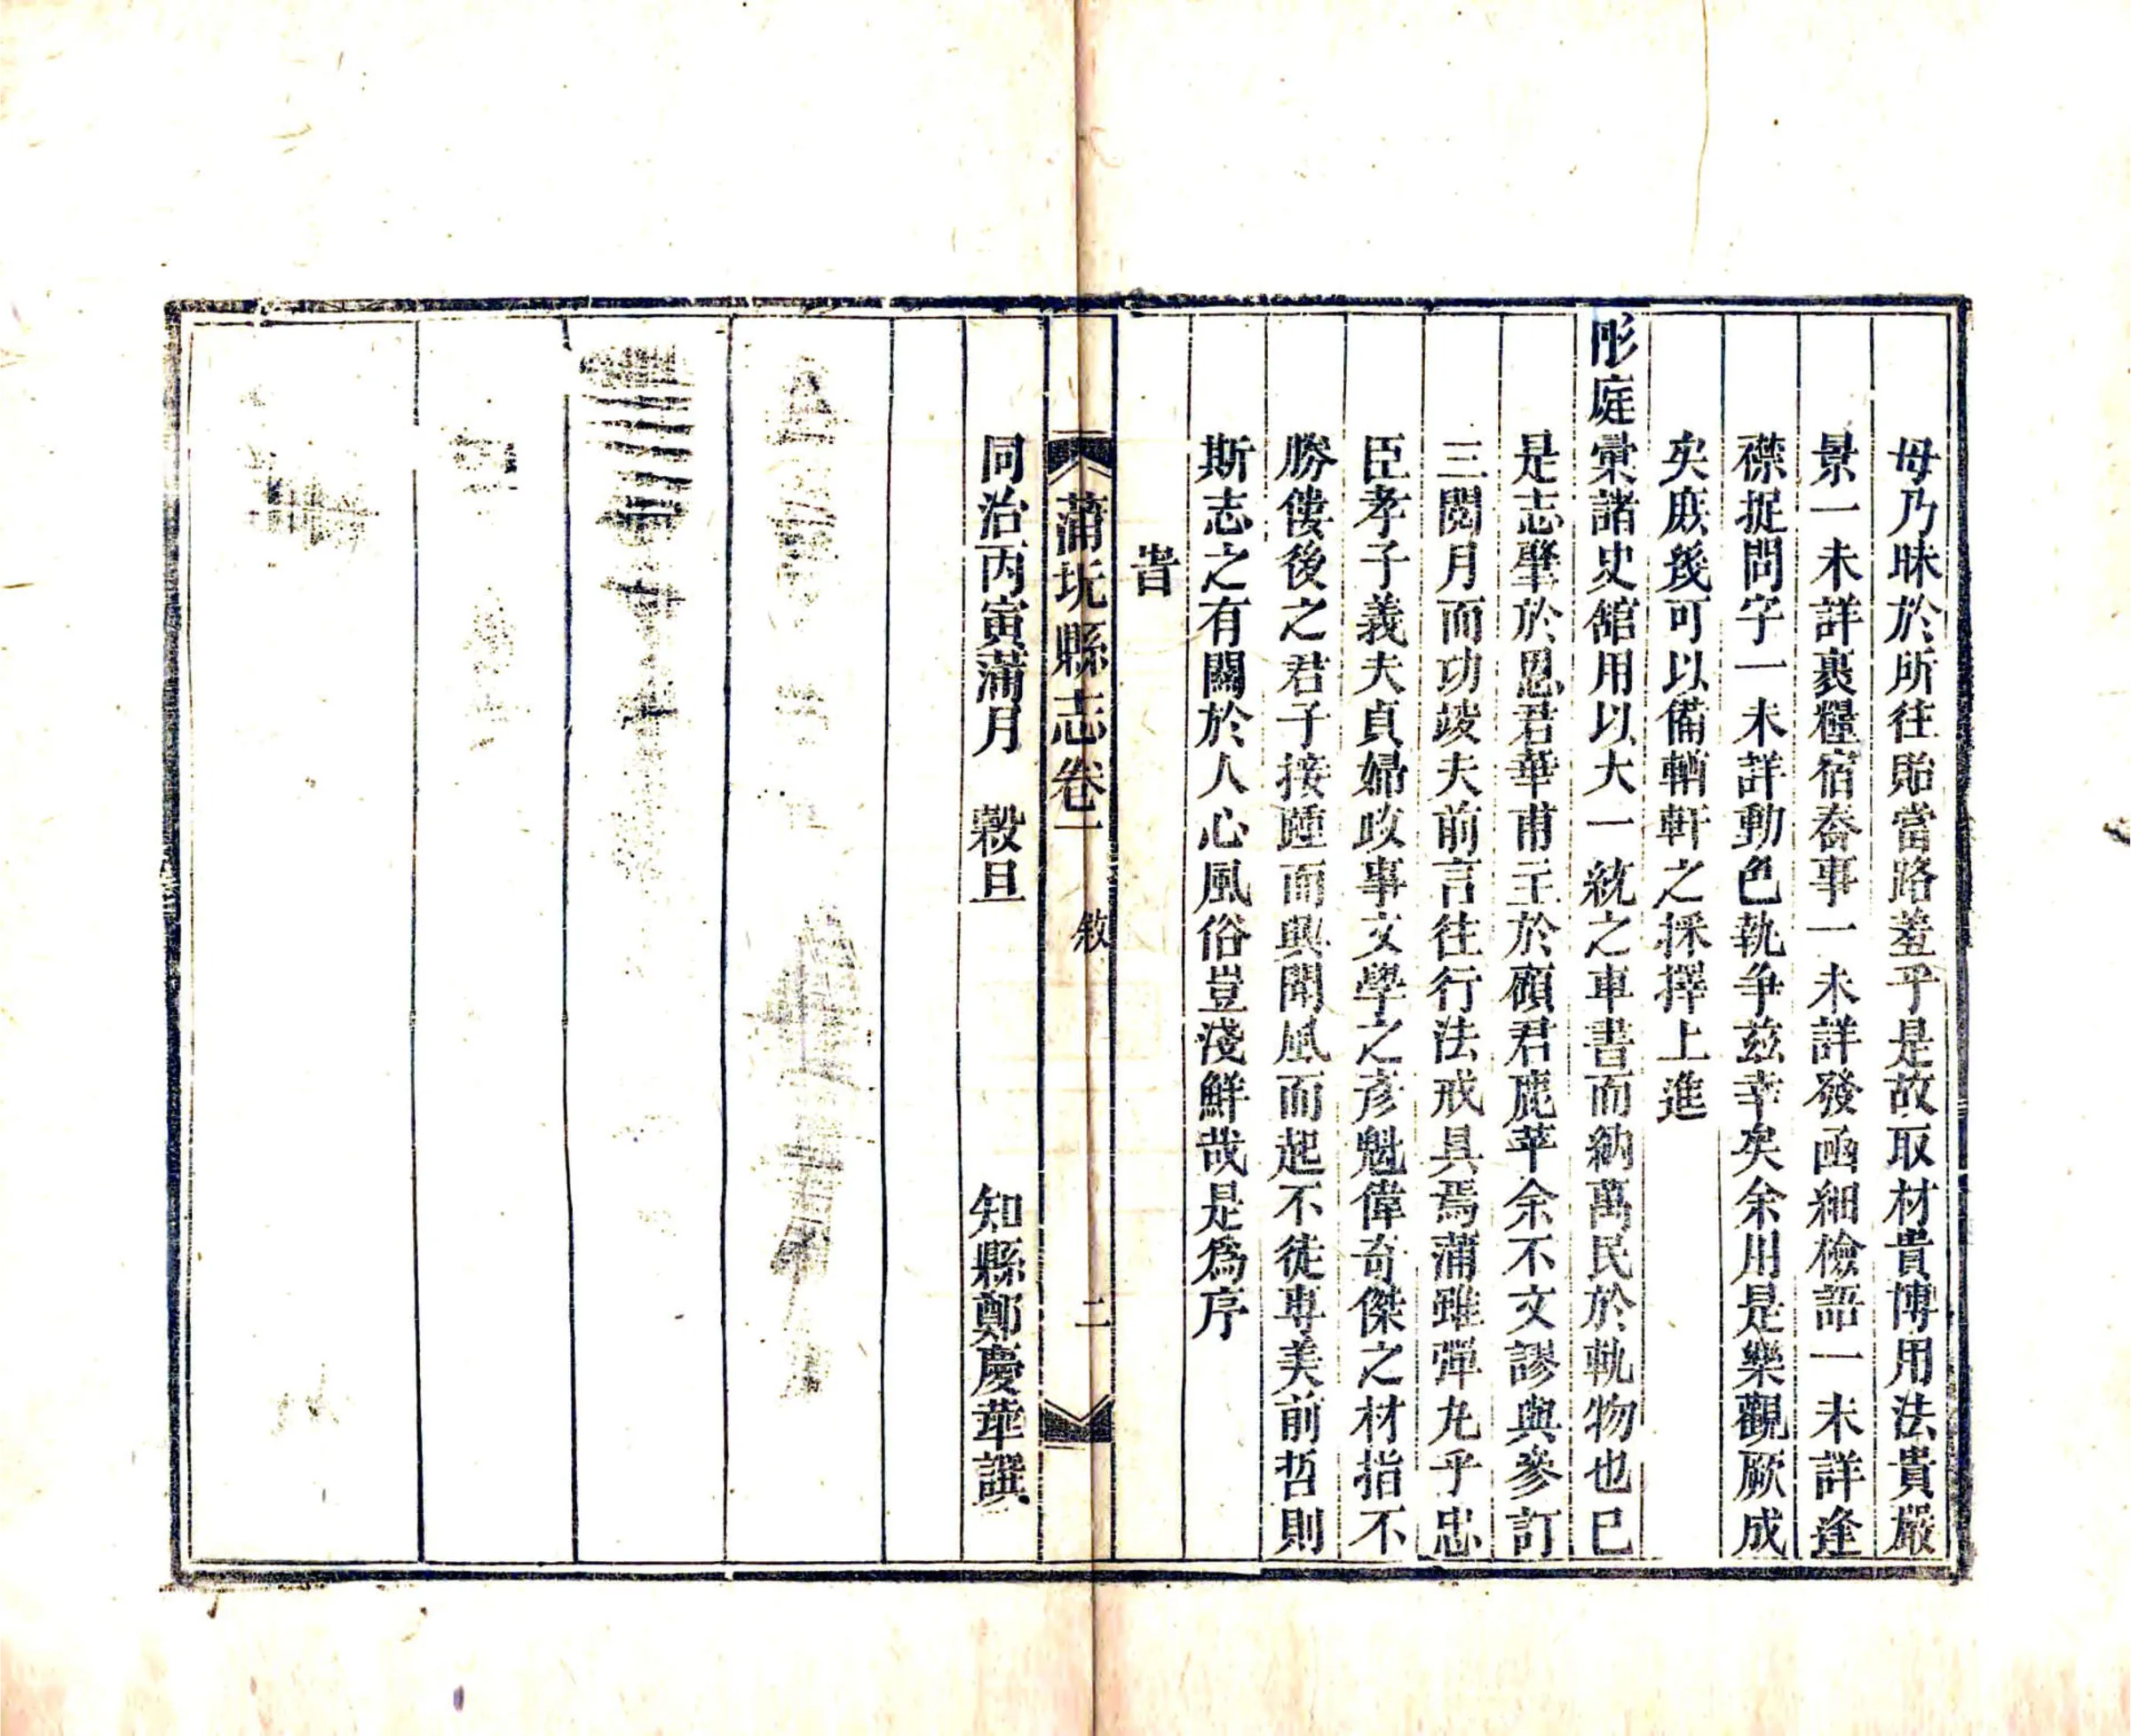 毋乃昧於所往貽當路羞乎是故取材貴博用法貴嚴
景一未詳裹糧宿舂事一未詳發函細檢語一未詳逢
襟捉問字一未詳動色執争兹幸矣余用是樂觀厥成
矣庶幾可以備輶軒之採擇上進
彤庭彚諸史舘用以大一統之車書而納萬民於軌物也已
是志肇於恩君華甫主於顧君鹿苹余不文謬與參訂
三閱月而功竣夫前言往行法戒具焉蒲雖彈丸乎忠
臣孝子義夫貞婦政事文學之彦魁偉奇傑之材指不
勝僂後之君子接踵而興聞風而起不徒専美前哲則
斯志之有關於人心風俗豈淺鮮哉是爲序
旹
蒲圻縣志卷一 敘 二
同治丙寅蒲月 榖旦 知縣鄭慶華譔